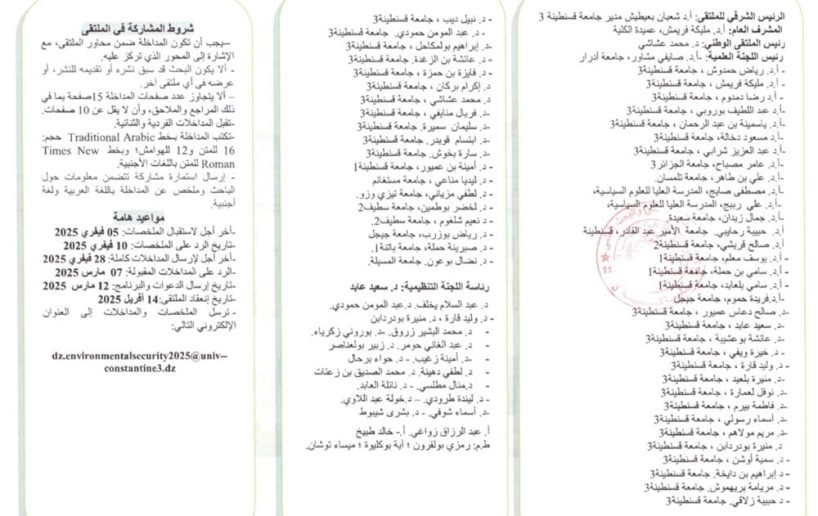 الرئيس الشرفي للملتقى: أ.د شعبان بعيطيش مدير جامعة قسنطينة 3
المشرف العام: أ.د. مليكة فريمش، عميدة الكلية
رئيس الملتقى الوطني: د. محمد عشاشي
رئيس اللجنة العلمية: أ.د. صايفي مشاور، جامعة أدرار
- أ.د. رياض حمدوش ، جامعة قسنطينة3
- أ.د. مليكة فريمش ، جامعة قسنطينة3
- أ.د رضا دمدوم ، جامعة قسنطينة3
-أ.د عبد اللطيف بوروبي ، جامعة قسنطينة3
-أ.د. ياسمينة بن عبد الرحمان ، جامعة قسنطينة3
-أ.د. مسعود دخالة، جامعة قسنطينة3
-أ.د عبد العزيز شرابي ، جامعة قسنطينة3
-أ.د. عامر مصباح، جامعة الجزائر3
-أ.د. علي بن طاهر، جامعة تلمسان.
-أ.د. مصطفى صايج، المدرسة العليا للعلوم السياسية،
-أ.د. علي ربيج، المدرسة العليا للعلوم السياسية،
-أ.د. جمال زيدان، جامعة سعيدة.
-أ.د. حبيبة رحايبي. جامعة الأمير عبد القادر، قسنطينة
-أ.د. صالح قريشي، جامعة قسنطينة2
- أ.د. يوسف معلم، جامعة قسنطينة1
-أ.د. سامي بن حملة، جامعة قسنطينة1
-أ.د. سامي بلعابد، جامعة قسنطينة1
-أ.د.فريدة حموم، جامعة جيجل
-د. صالح دعاس عميور ، جامعة قسنطينة3
-د. سعيد عابد ، جامعة قسنطينة3
-د. عائشة بوعشيبة ، جامعة قسنطينة3
- د. خيرة ويفي ، جامعة قسنطينة3
-د. وليد قارة ، جامعة قسنطينة3
-د. منيرة بلعيد ، جامعة قسنطينة3
-د. نوفل لعمارة ، جامعة قسنطينة3
-د. فاطمة بيرم ، جامعة قسنطينة3
-د. أسماء رسولي ، جامعة قسنطينة3
-د. مريم مولاهم ، جامعة قسنطينة3
د. منيرة بودردابن ، جامعة قسنطينة3
-د. سمية أوشن ، جامعة قسنطينة3
-د إبراهيم بن دايخة، جامعة قسنطينة3
-د. مريامة بريهموش، جامعة قسنطينة3
-د حبيبة زلاقي، جامعة قسنطينة3
- د. نبيل ديب ، جامعة قسنطينة3
- د. عبد المومن حمودي. جامعة قسنطينة3
-د. إبراهيم بومكاحل، جامعة قسنطينة3
-د. عائشة بن الزغدة. جامعة قسنطينة3
-د. فايزة بن حمزة ، جامعة قسنطينة3
-د. إكرام بركان ، جامعة قسنطينة3
د. محمد عشاشي ، جامعة قسنطينة3
-د. فريال منايفي ، جامعة قسنطينة3
-د. سليمان سميرة جامعة قسنطينة3
-د. ابتسام قويدر. جامعة قسنطينة3
-د. سارة بخوش. جامعة قسنطينة3
-د. أمينة بن عميور، جامعة قسنطينة1
-د. ليديا مناعي ، جامعة مستغانم
-د. لطفي مزياني، جامعة تيزي وزو.
-د. لخضر بوطمين، جامعة سطيف2
-د نعيم شلغوم ، جامعة سطيف2.
-د. رياض بوزرب، جامعة جيجل
-د. صبرينة حملة، جامعة باتنة1.
-د. نضال بوعون. جامعة المسيلة.
رئاسة اللجنة التنظيمية: د. سعيد عابد
د. عبد السلام يخلف. د.عبد المومن حمودي.
-د. وليد قارة ، د. منيرة بودردابن
- د. محمد البشير زروق. -د. بوروني زكرياء.
- د. عبد الغاني حومر. د. زبير بولعناصر
- -د. أمينة زغيب. - د. حواء برحال
- د. لطفي دهينة. د. محمد الصديق بن زعتات
- د.منال مطلسي. - د. نائلة العابد.
-د. ليندة طرودي. – د.خولة عبد اللاوي.
-د. أسماء شوفي. - د. بشرى شيبوط
أ. عبد الرزاق زواغي. أ.- خالد طبيخ
ط.م: رمزي بولقرون ؛ آية بوكليوة ؛ ميساء توشان.
شروط المشاركة في الملتقى
–يجب أن تكون المداخلة ضمن محاور الملتقى، مع
الإشارة إلى المحور الذي تركز عليه.
- ألا يكون البحث قد سبق نشره أو تقديمه للنشر، أو
عرضه في أي ملتقى آخر.
– ألا يتجاوز عدد صفحات المداخلة 15صفحة بما في
ذلك المراجع والملاحق، وأن لا يقل عن 10 صفحات.
-تقبل المداخلات الفردية والثنائية.
-تكتب المداخلة بخط Traditional Arabic حجم:
16 للمتن و12 للهوامش؛ وبخط Times New
Roman للمتن باللغات الأجنبية.
- إرسال استمارة مشاركة تتضمن معلومات حول
الباحث وملخص عن المداخلة باللغة العربية ولغة
أجنبية.
مواعيد هامة
-آخر أجل لاستقبال الملخصات: 05 فيفري 2025
-تاريخ الرد على الملخصات: 10 فيفري 2025
-آخر أجل لإرسال المداخلات كاملة: 28 فيفري 2025
-الرد على المداخلات المقبولة: 07 مارس 2025
-تاريخ إرسال الدعوات والبرنامج: 12 مارس 2025
-تاريخ إنعقاد الملتقى:14 أفريل 2025
- ترسل الملخصات والمداخلات إلى العنوان
الإلكتروني التالي:
dz.environmentalsecurity2025@univ--
constantine3.dz